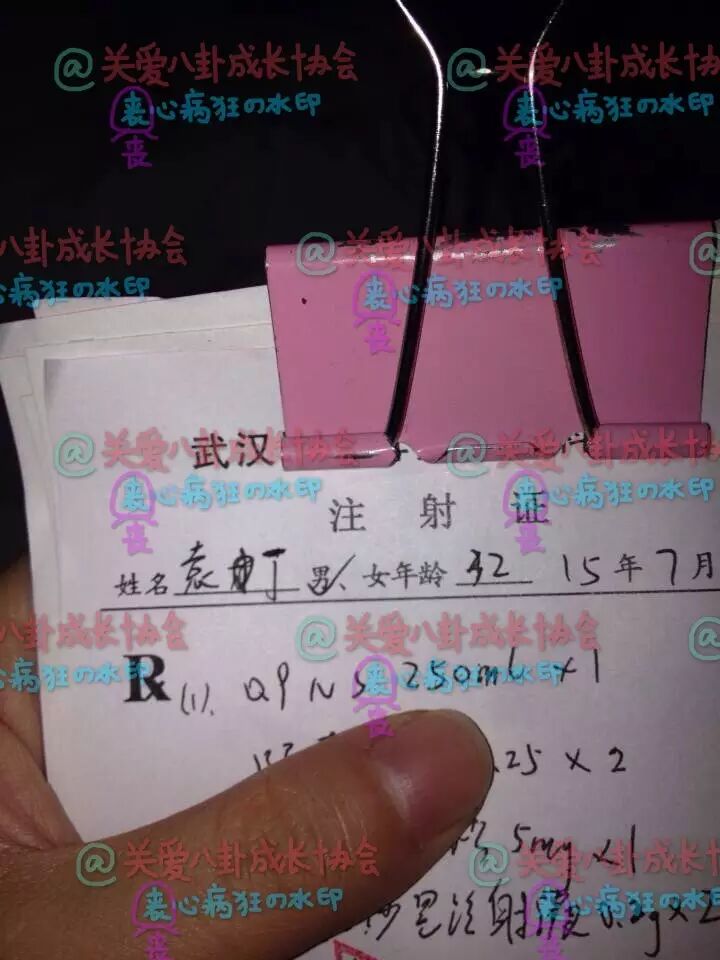 @关爱八卦成长协会 @关爱八卦成长协会
丧心病狂の水印 丧心病狂の水印
丧 丧
八卦成长协会 @关爱八卦成长协会 @
心病狂の水印 丧心病狂の水印
丧
武汉
@关爱八卦成长协会 @关爱八卦成长协会
丧心病狂の水印 丧心病狂の水印
丧 丧
注射证
姓名 袁 丁 男✓、女 年龄 32 15年7月
关爱八卦成长协会 @关爱八卦成长协会 @
心病狂の水印 丧心病狂の水印
丧
R (1). NS 250ml ×1
.25 × 2
5mg ×1
@关爱八卦成长协会 @关爱八卦成长协会
丧心病狂の水印 丧心病狂の水印
丧 丧
星注射 0.2g×2